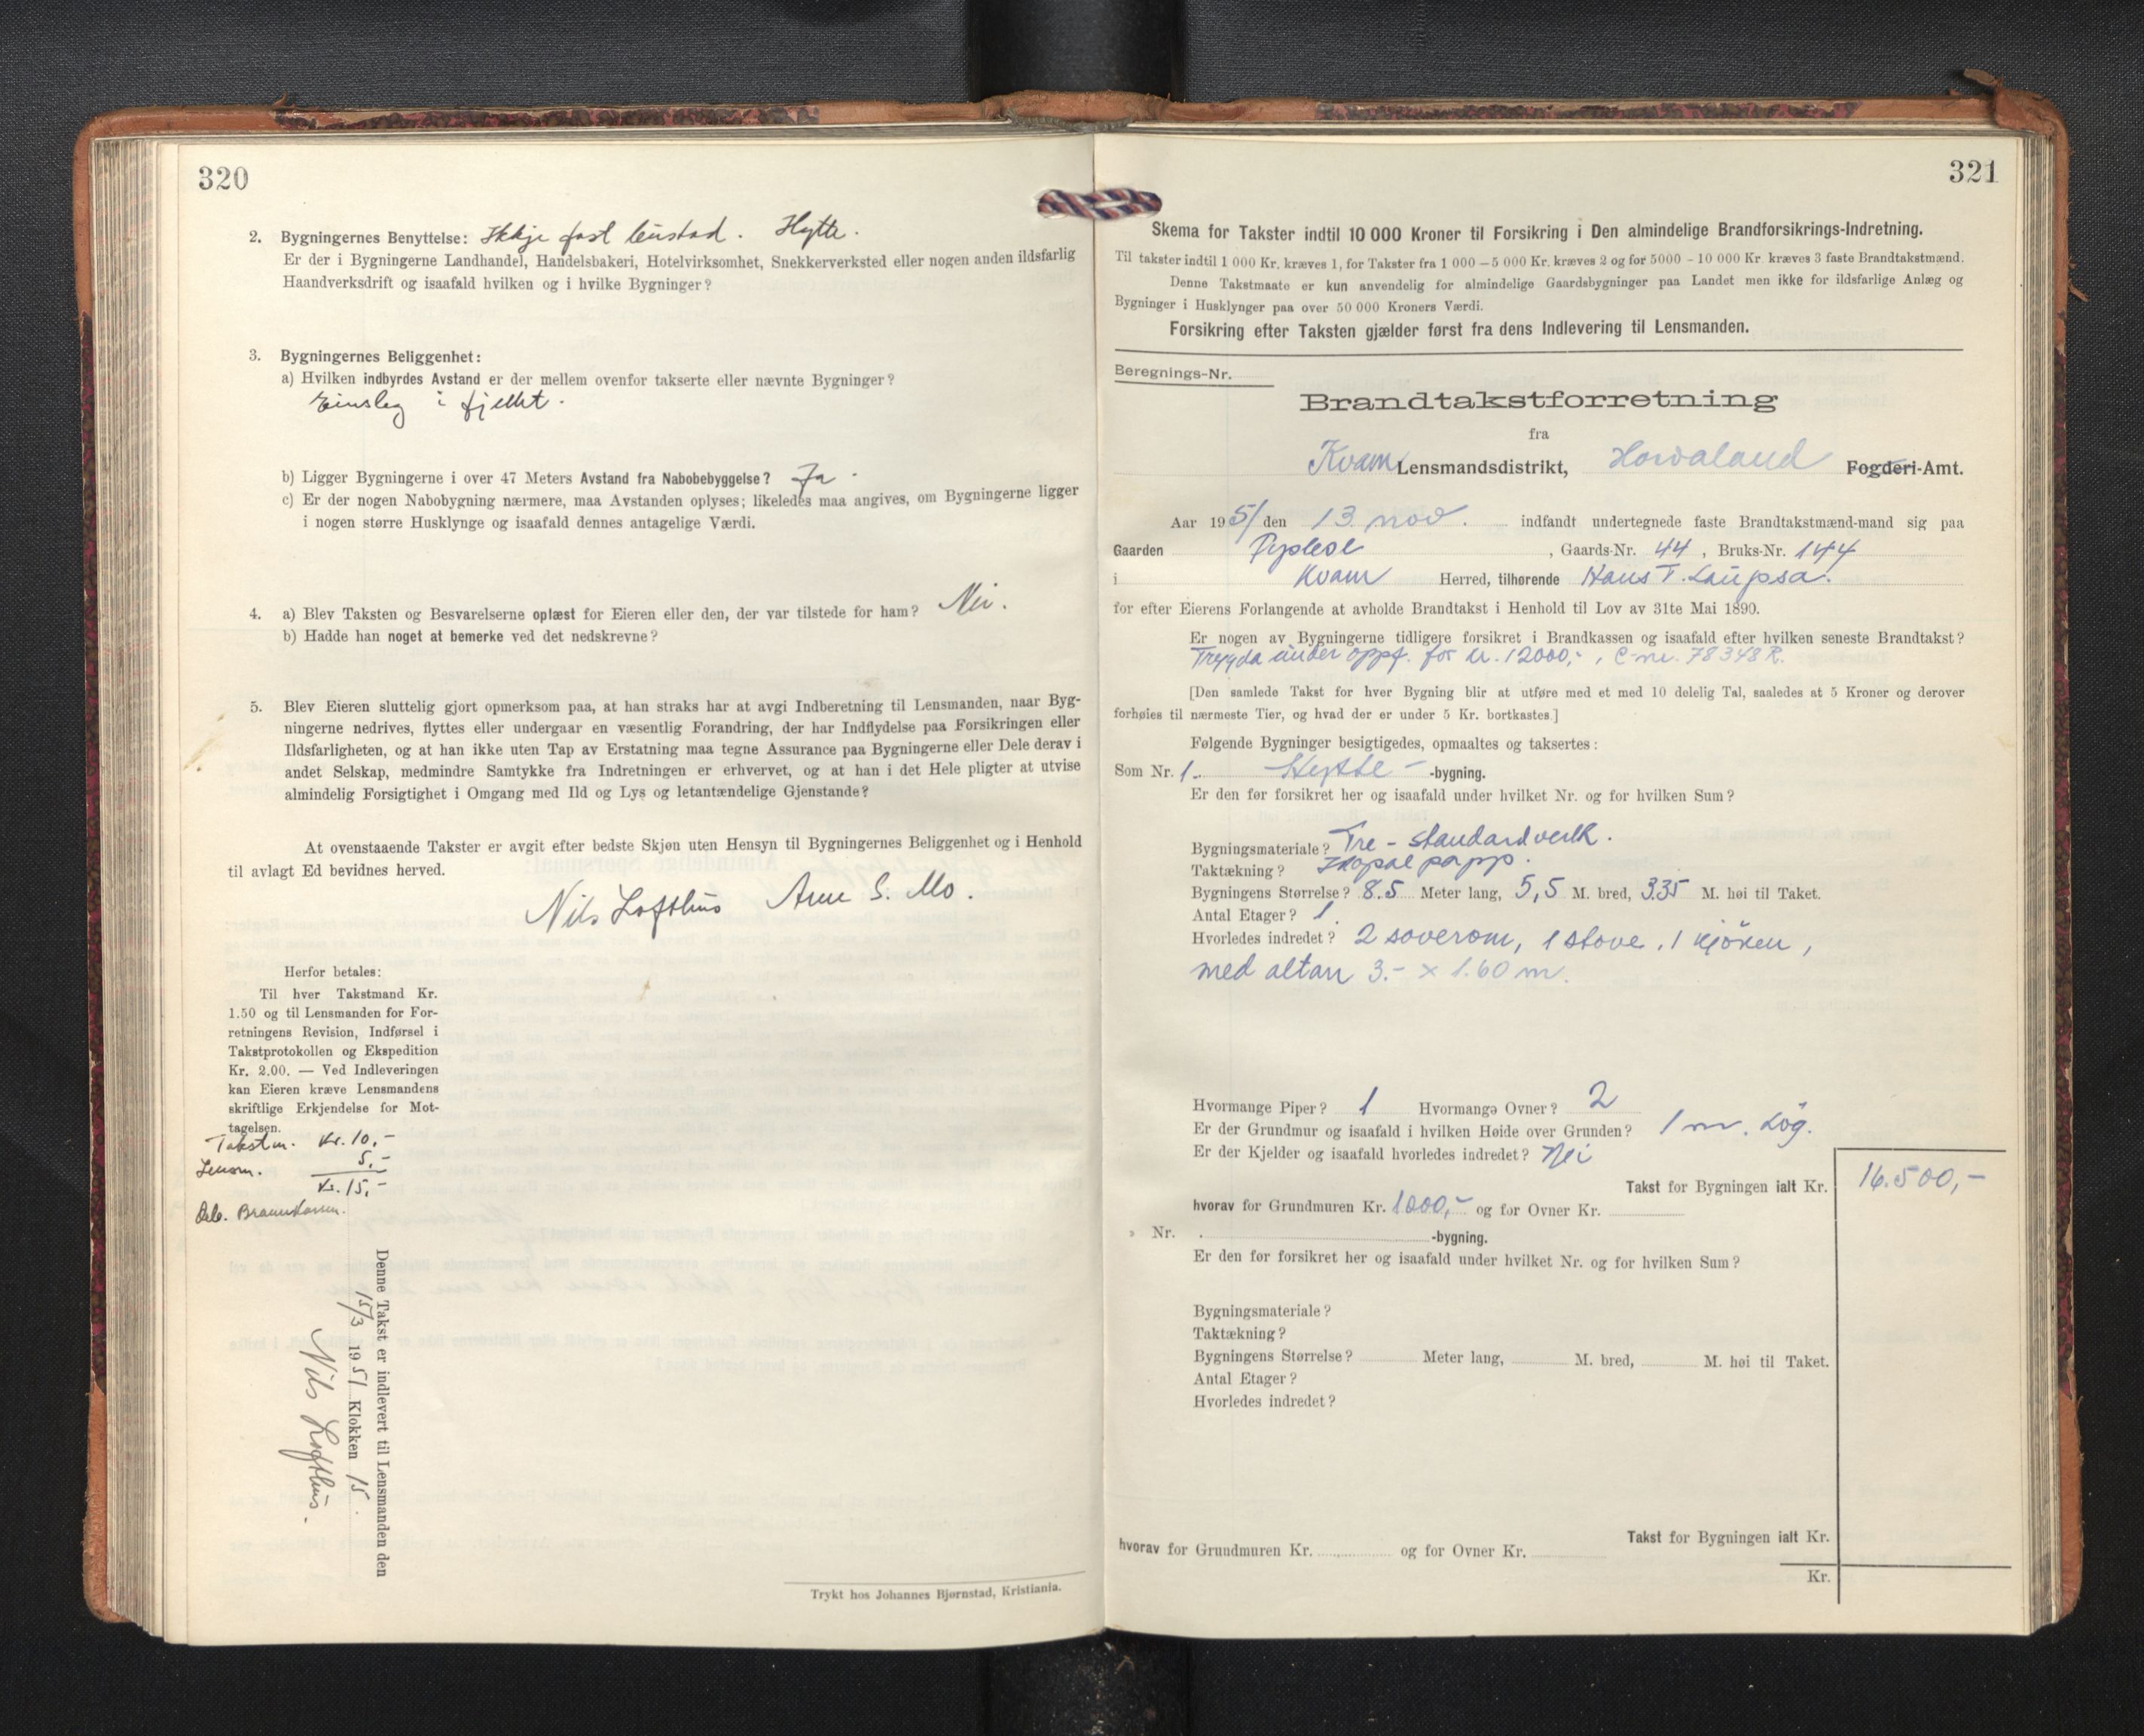 320
2. Bygningernes Benyttelse: Ikkje fast bustad. Hytte.
Er der i Bygningerne Landhandel, Handelsbakeri, Hotelvirksomhet, Snekkerverksted eller nogen anden ildsfarlig
Haandverksdrift og isaafald hvilken og i hvilke Bygninger?
3. Bygningernes Beliggenhet:
a) Hvilken indbyrdes Avstand er der mellem ovenfor takserte eller nævnte Bygninger?
Einsleg i fjellet.
b) Ligger Bygningerne i over 47 Meters Avstand fra Nabobebyggelse? Ja.
c) Er der nogen Nabobygning nærmere, maa Avstanden oplyses; likeledes maa angives, om Bygningerne ligger
i nogen større Husklynge og isaafald dennes antagelige Værdi.
4. a) Blev Taksten og Besvarelserne oplæst for Eieren eller den, der var tilstede for ham? Nei.
b) Hadde han noget at bemerke ved det nedskrevne?
5. Blev Eieren sluttelig gjort opmerksom paa, at han straks har at avgi Indberetning til Lensmanden, naar Byg-
ningerne nedrives, flyttes eller undergaar en væsentlig Forandring, der har Indflydelse paa Forsikringen eller
Ildsfarligheten, og at han ikke uten Tap av Erstatning maa tegne Assurance paa Bygningerne eller Dele derav i
andet Selskap, medmindre Samtykke fra Indretningen er erhvervet, og at han i det Hele pligter at utvise
almindelig Forsigtighet i Omgang med Ild og Lys og letantændelige Gjenstande?
At ovenstaaende Takster er avgit efter bedste Skjøn uten Hensyn til Bygningernes Beliggenhet og i Henhold
til avlagt Ed bevidnes herved.
Nils Lofthus Arne S. Mo.
Herfor betales:
Til hver Takstmand Kr.
1.50 og til Lensmanden for For-
retningens Revision, Indførsel i
Takstprotokollen og Ekspedition
Kr. 2.00. — Ved Indleveringen
kan Eieren kræve Lensmandens
skriftlige Erkjendelse for Mot-
tagelsen.
Takstm. Kr. 10,-
Lensm. 5,-
Kr. 15,-
Denne Takst er indlevert til Lensmanden den
15/3 1951 Klokken 15.
Nils Lofthus.
Trykt hos Johannes Bjørnstad, Kristiania.
321
Skema for Takster indtil 10 000 Kroner til Forsikring i Den almindelige Brandforsikrings-Indretning.
Til takster indtil 1 000 Kr. kræves 1, for Takster fra 1 000 – 5 000 Kr. kræves 2 og for 5000 - 10 000 Kr kræves 3 faste Brandtakstmænd.
Denne Takstmaate er kun anvendelig for almindelige Gaardsbygninger paa Landet men ikke for ildsfarlige Anlæg og
Bygninger i Husklynger paa over 50 000 Kroners Værdi.
Forsikring efter Taksten gjælder først fra dens Indlevering til Lensmanden.
Beregnings-Nr.
Brandtakstforretning
fra
Kvam Lensmandsdistrikt, Hordaland Fogderi-Amt.
Aar 1951 den 13. nov. indfandt undertegnede faste Brandtakstmænd-mand sig paa
Gaarden , Gaards-Nr. 44 , Bruks-Nr. 144
i Kvam Herred, tilhørende Hans T. Laupsa.
for efter Eierens Forlangende at avholde Brandtakst i Henhold til Lov av 31te Mai 1890.
Er nogen av Bygningerne tidligere forsikret i Brandkassen og isaafald efter hvilken seneste Brandtakst?
Trygda under oppf. for kr. 12000,-, C-nr. 78348 R.
[Den samlede Takst for hver Bygning blir at utføre med et med 10 delelig Tal, saaledes at 5 Kroner og derover
forhøies til nærmeste Tier, og hvad der er under 5 Kr. bortkastes.]
Følgende Bygninger besigtigedes, opmaaltes og taksertes:
Som Nr. 1. Hytte -bygning.
Er den før forsikret her og isaafald under hvilket Nr. og for hvilken Sum?
Bygningsmateriale? Tre - standardverk.
Taktækning? papp.
Bygningens Størrelse? 8.5 Meter lang, 5,5 M. bred, 3.35 M. høi til Taket.
Antal Etager? 1.
Hvorledes indredet? 2 soverom, 1 stove, 1 kjöken,
med altan 3.- x 1.60 m.
Hvormange Piper? 1 Hvormange Ovner? 2
Er der Grundmur og isaafald i hvilken Høide over Grunden? 1 m. Lög.
Er der Kjelder og isaafald hvorledes indredet? Nei
Takst for Bygningen ialt Kr. 16.500,-
hvorav for Grundmuren Kr. 1000,- og for Ovner Kr.
» Nr. -bygning.
Er den før forsikret her og isaafald under hvilket Nr. og for hvilken Sum?
Bygningsmateriale?
Taktækning?
Bygningens Størrelse? Meter lang, M. bred, M. høi til Taket.
Antal Etager?
Hvorledes indredet?
Takst for Bygningen ialt Kr.
hvorav for Grundmuren Kr. og for Ovner Kr.
Kr.